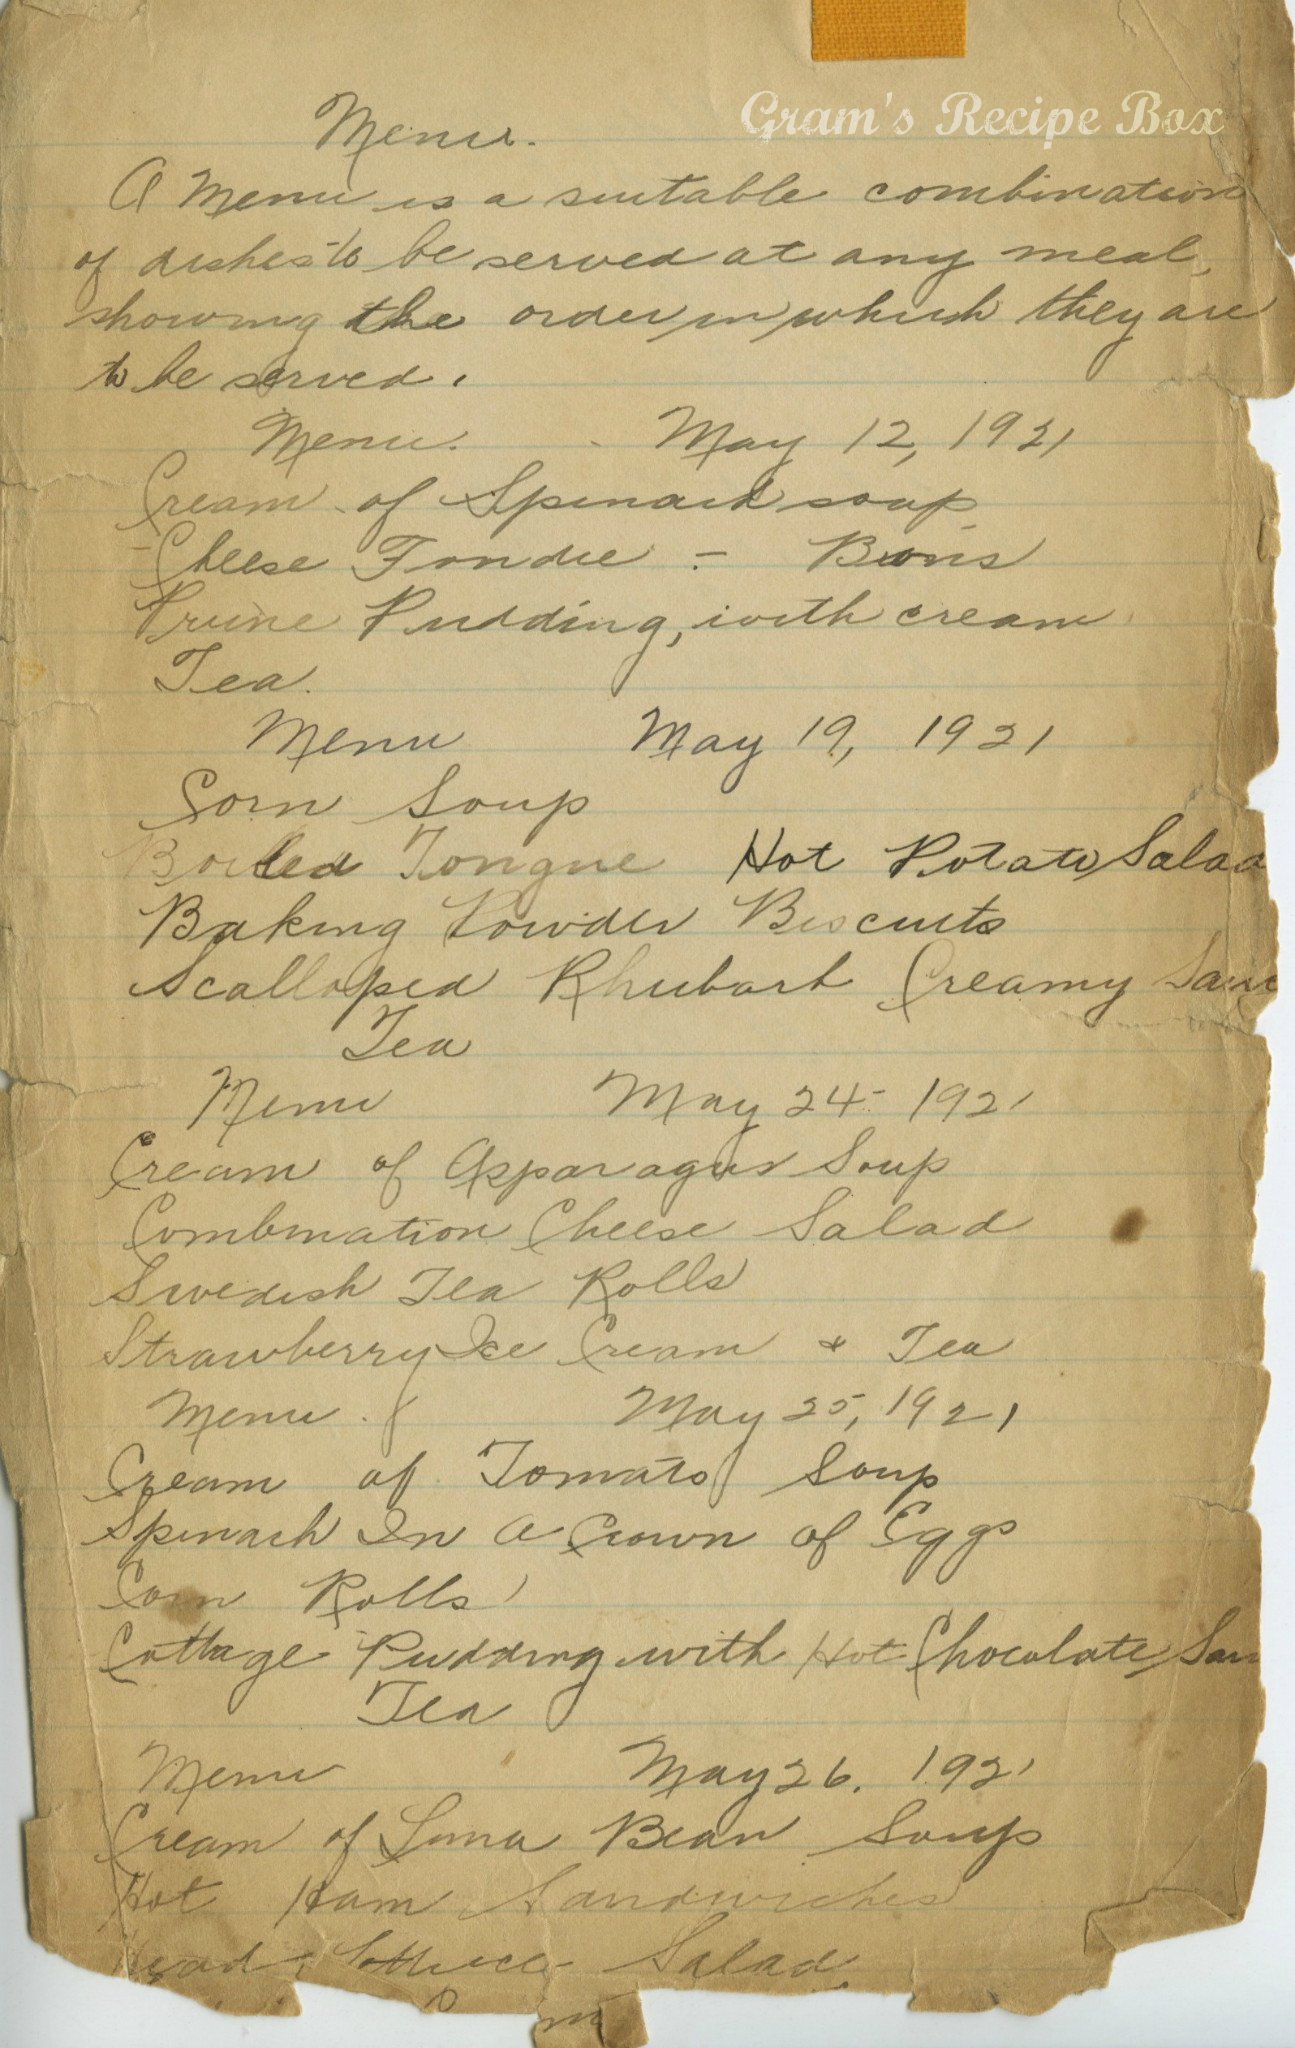 Gram's Recipe Box
Menu.
A Menu is a suitable combination
of dishes to be served at any meal,
showing the order in which they are
to be served.
Menu. - May 12, 1921
Cream of Spinach soup
Cheese Fondue - Buns
Prune Pudding, with cream
Tea.
Menu May 19, 1921
Corn Soup
Boiled Tongue Hot Potato Salad
Baking Powder Biscuits
Scalloped Rhubarb Creamy Sauc
Tea
Menu May 24- 1921
Cream of Asparagus Soup
Combination Cheese Salad
Swedish Tea Rolls
Strawberry Ice Cream & Tea
Menu. May 25, 1921
Cream of Tomato Soup
Spinach In A Crown of Eggs
Corn Rolls
Cottage Pudding with Hot Chocolate Sau
Tea
Menu May 26. 1921
Cream of Lima Bean Soup
Hot Ham Sandwiches
Head Lettuce Salad